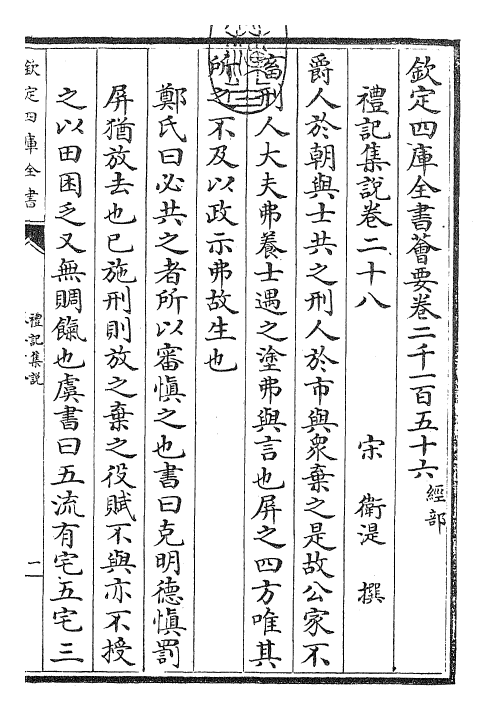 欽定四庫全書薈要卷二千一百五十六 經部
禮記集說卷二十八 宋 衛湜 撰
爵人於朝與士共之刑人於市與衆棄之是故公家不
畜刑人大夫弗養士遇之塗弗與言也屏之四方唯其
所之不及以政示弗故生也
鄭氏曰必共之者所以審慎之也書曰克明德慎罰
屏猶放去也已施刑則放之棄之役賦不與亦不授
之以田困乏又無賙餼也虞書曰五流有宅五宅三
欽定四庫全書
禮記集說
一